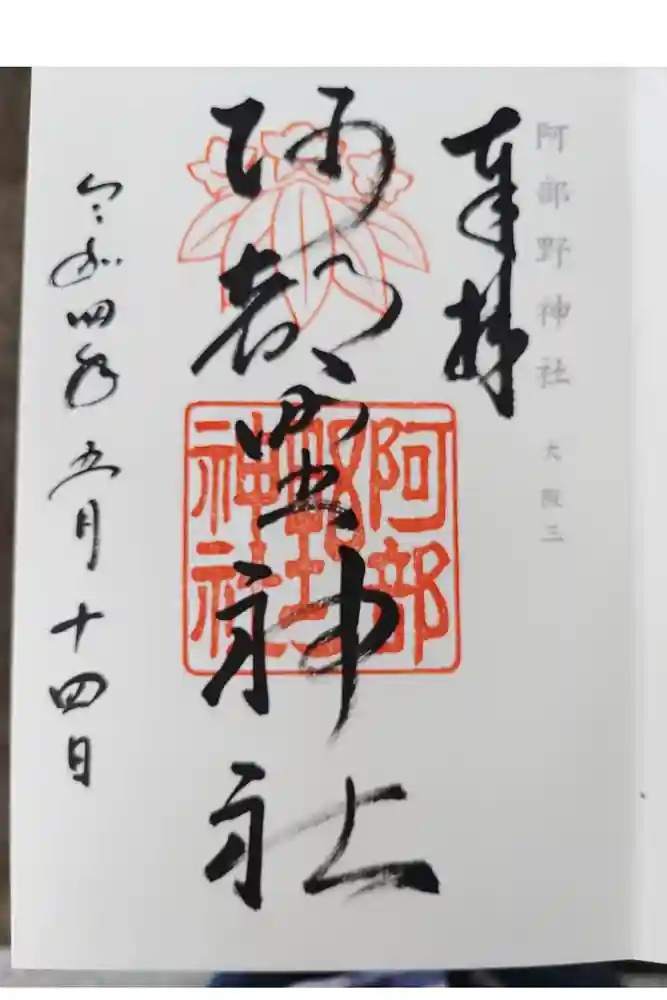 阿部野神社 大阪三
奉拝
阿部野神社
阿部
野
神社
令和四年五月十四日